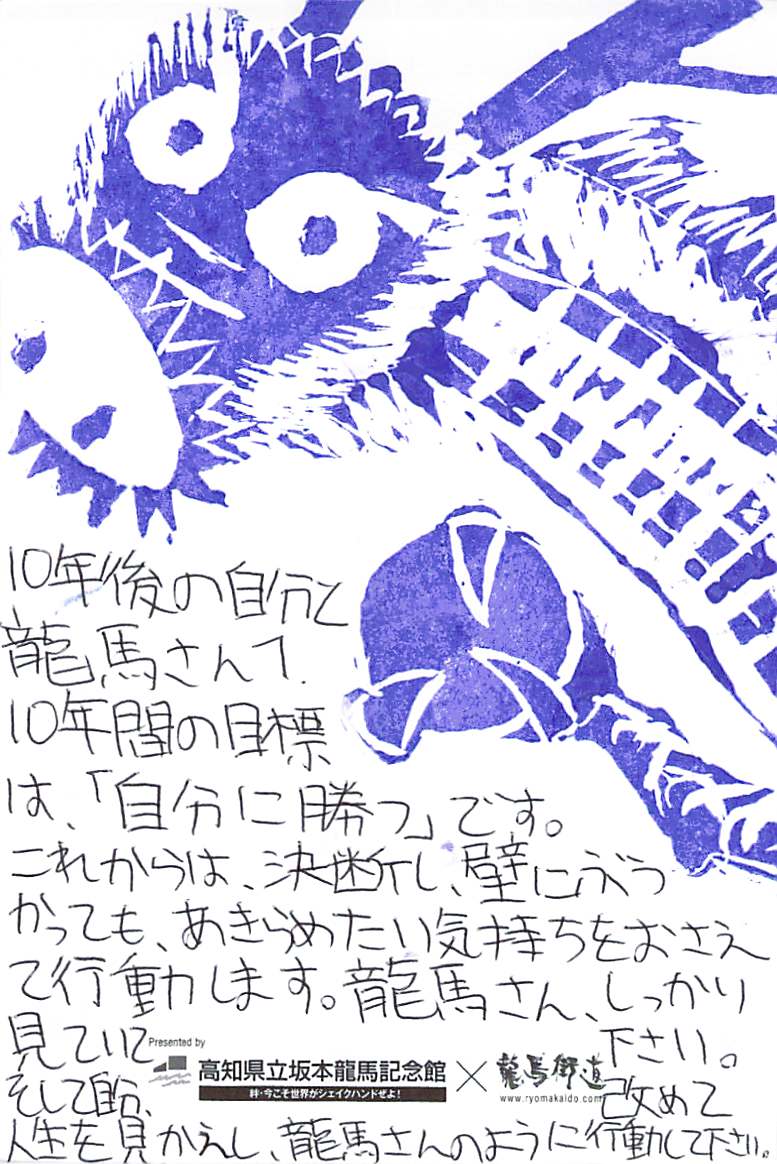 10年後の自分と
龍馬さんて.
10年間の目標
は、「自分に勝つ」です。
これからは、決断し、壁にぶつ
かっても、あきらめたい気持ちをおさえ
て行動します。龍馬さん、しっかり
見ていて 下さい。
Presented by
高知県立坂本龍馬記念館 × 龍馬街道
絆・今こそ世界がシェイクハンドせよ!
www.ryomakaido.com
そして自分、 改めて
人生を見かえし、龍馬さんのように行動して下さい。